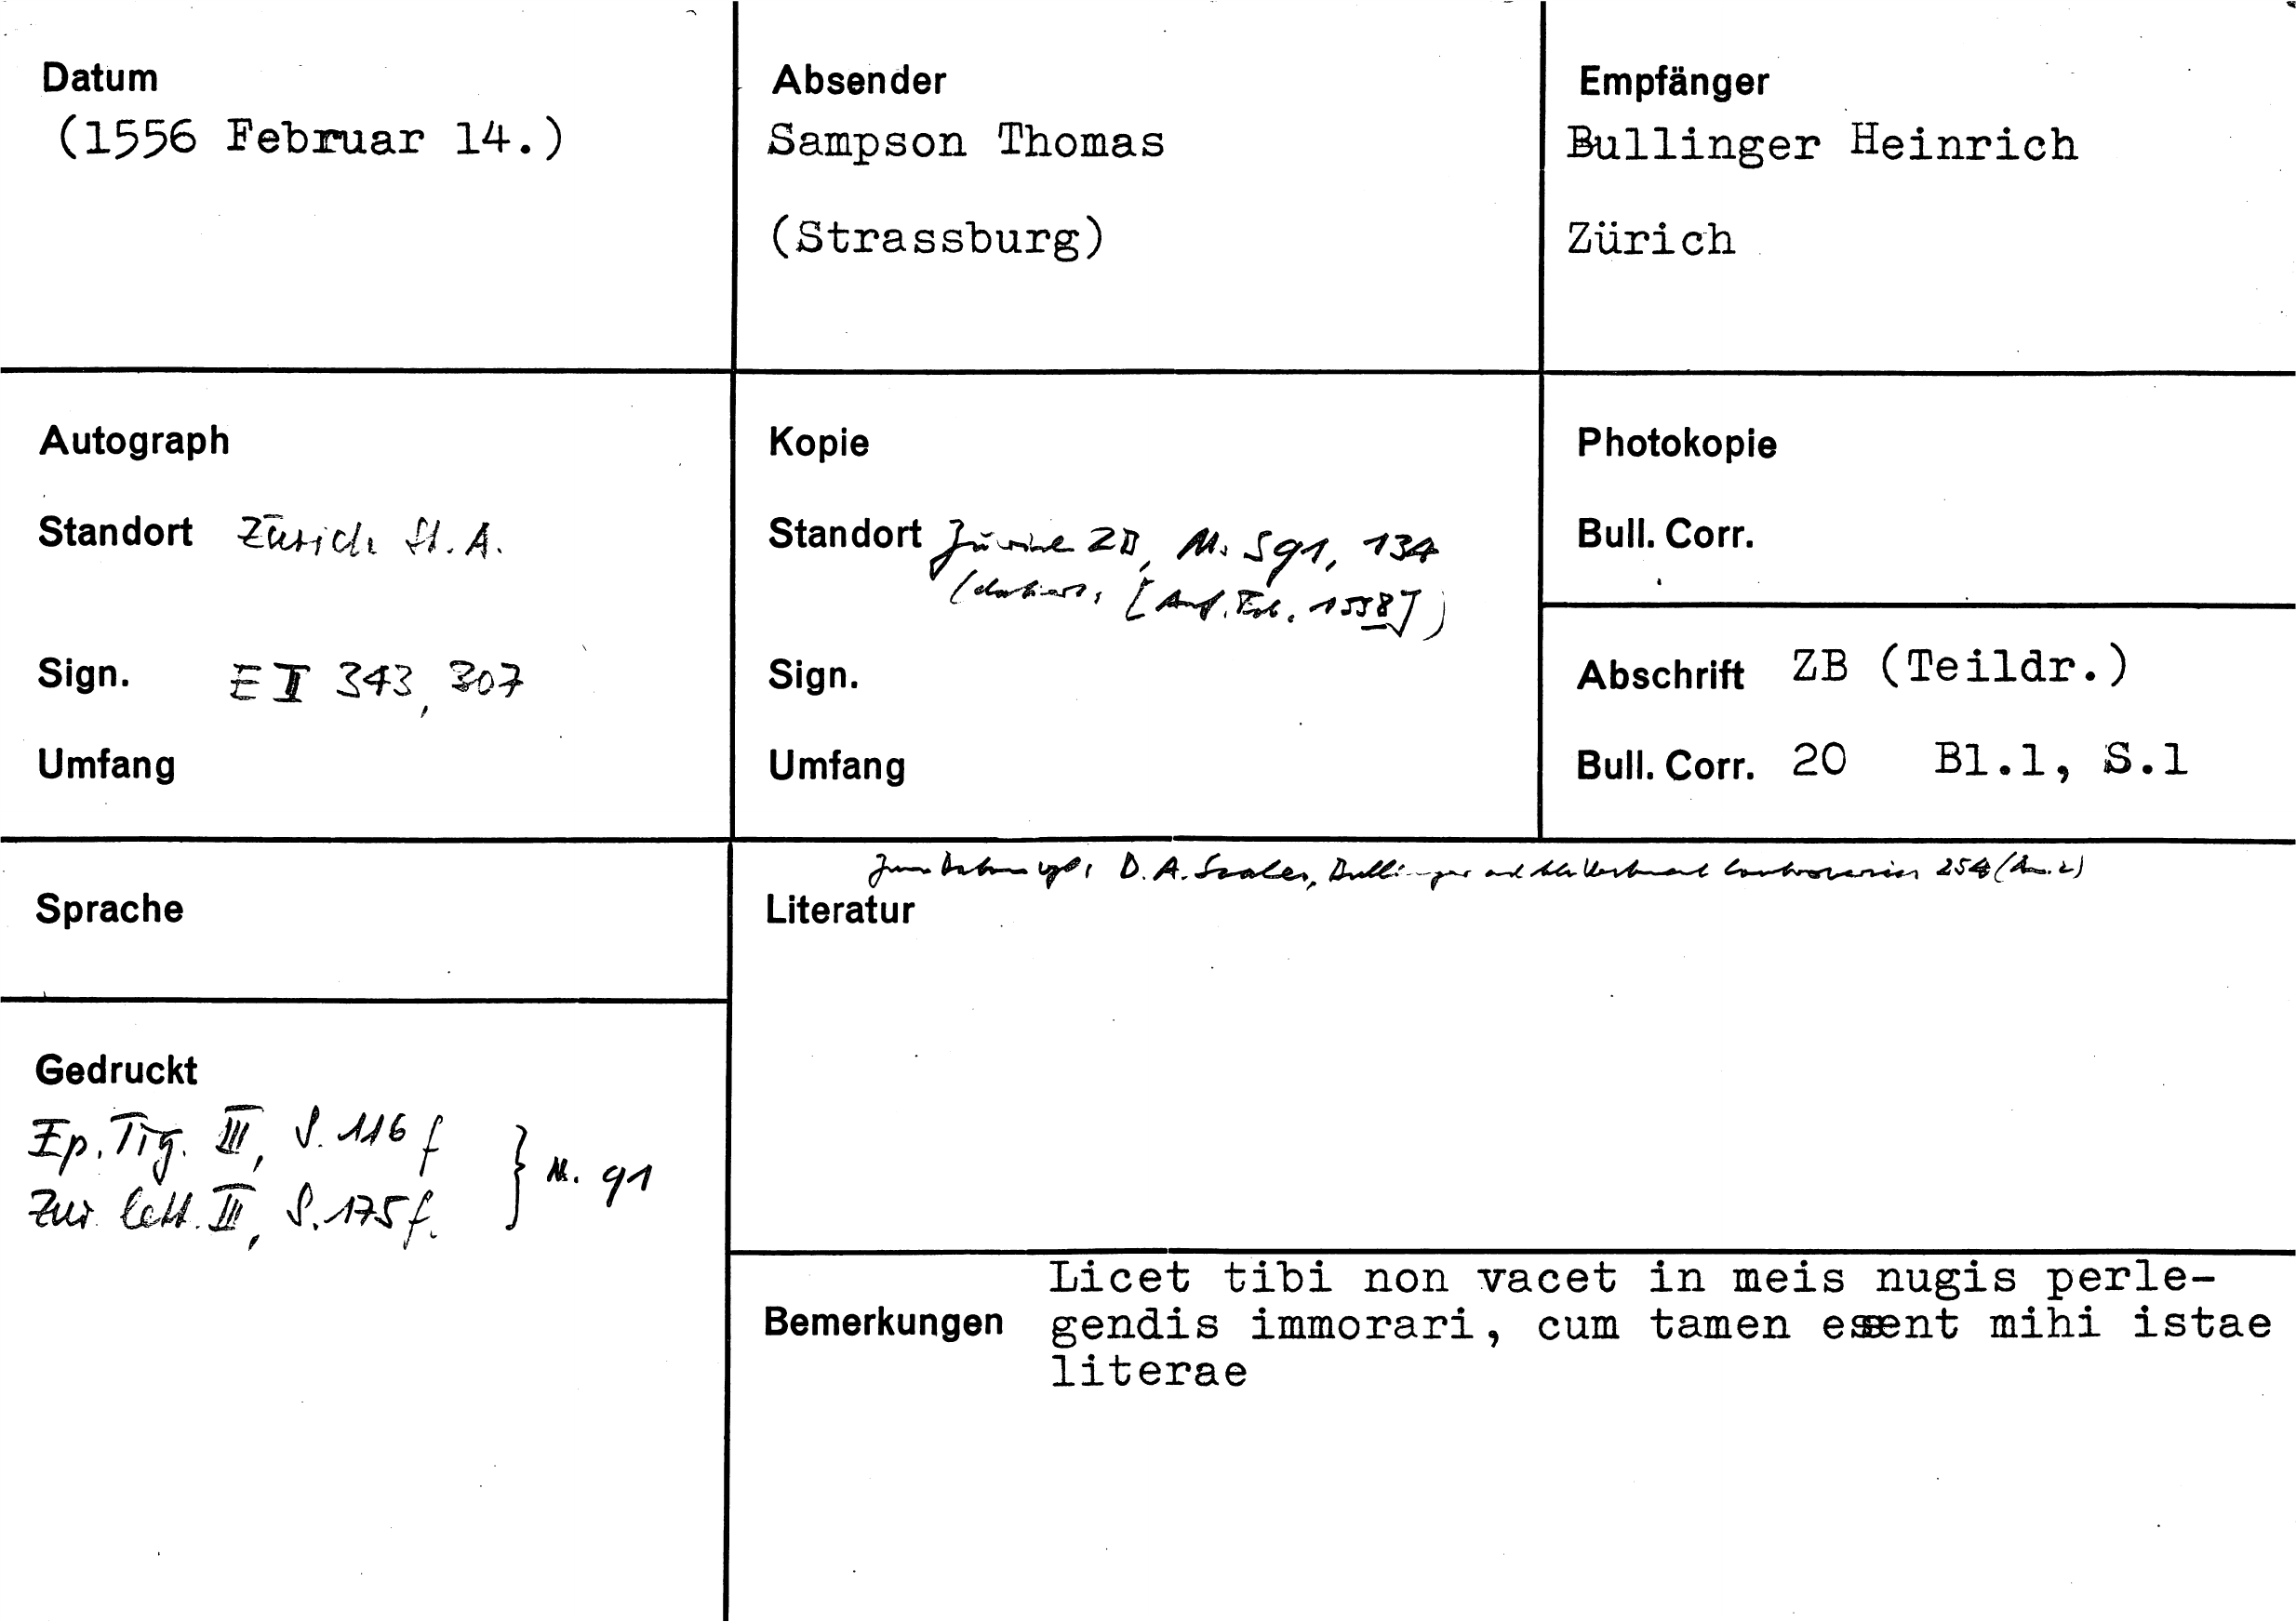 Datum
(1556 Februar 14.)
Absender
Sampson Thomas
(Strassburg)
Empfänger
Bullinger Heinrich
Zürich
Autograph
Standort Zürich St. A.
Sign. E II 343, 307
Umfang
Kopie
Standort Zürich ZB, Ms. S 91, 134
(datiert: [Anf. Feb. 1558])
Sign.
Umfang
Photokopie
Bull. Corr.
Abschrift ZB (Teildr.)
Bull. Corr. 20 Bl.1, S.1
Sprache
Gedruckt
Ep. Tig. III, S. 116 f
Zur. Lett. III, S. 175 f.
} N. 91
Zum Datum vgl. D. A. Scales, Bullinger and the Vestment Controversies 254 (Anm. 2)
Literatur
Bemerkungen
Licet tibi non vacet in meis nugis perle-
gendis immorari, cum tamen essent mihi istae
literae